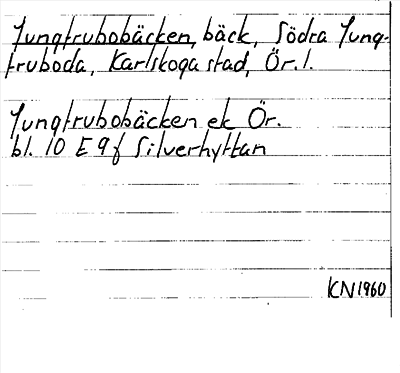 Jungfrubobäcken, bäck, Södra Jung-
fruboda, Karlskoga stad, Ör. l.
Jungfrubobäcken ek Ör.
bl. 10 E 9f Silverhyttan
KN 1960